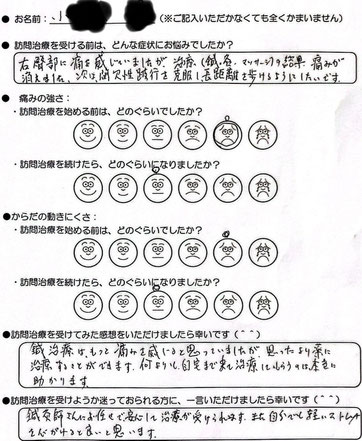 ● お名前：小　　　　　（※ご記入いただかなくても全くかまいません）
● 訪問治療を受ける前は、どんな症状にお悩みでしたか？
右臀部に痛を感じていましたが 治療（鍼・灸・マッサージ）の結果 痛みが
消えました。次は間欠性跛行を克服し長距離を歩けるようにしたいです。
● 痛みの強さ：
・訪問治療を始める前は、どのぐらいでしたか？
・訪問治療を続けたら、どのぐらいになりましたか？
●からだの動きにくさ：
・訪問治療を始める前は、どのぐらいでしたか？
・訪問治療を続けたら、どのぐらいになりましたか？
●訪問治療を受けてみた感想をいただけましたら幸いです（＾＾）
鍼治療は、もっと痛みを感じると思っていましたが 思ったより楽に
治療することができます。何よりも自宅まで来て治療してもらうのは本当に
助かります。
●訪問治療を受けようか迷っておられる方に、一言いただけましたら幸いです（＾＾）
鍼灸師さんにお任せで安心して治療が受けられます。また自分でも軽いストレッチ
を心がけると良いと思います。